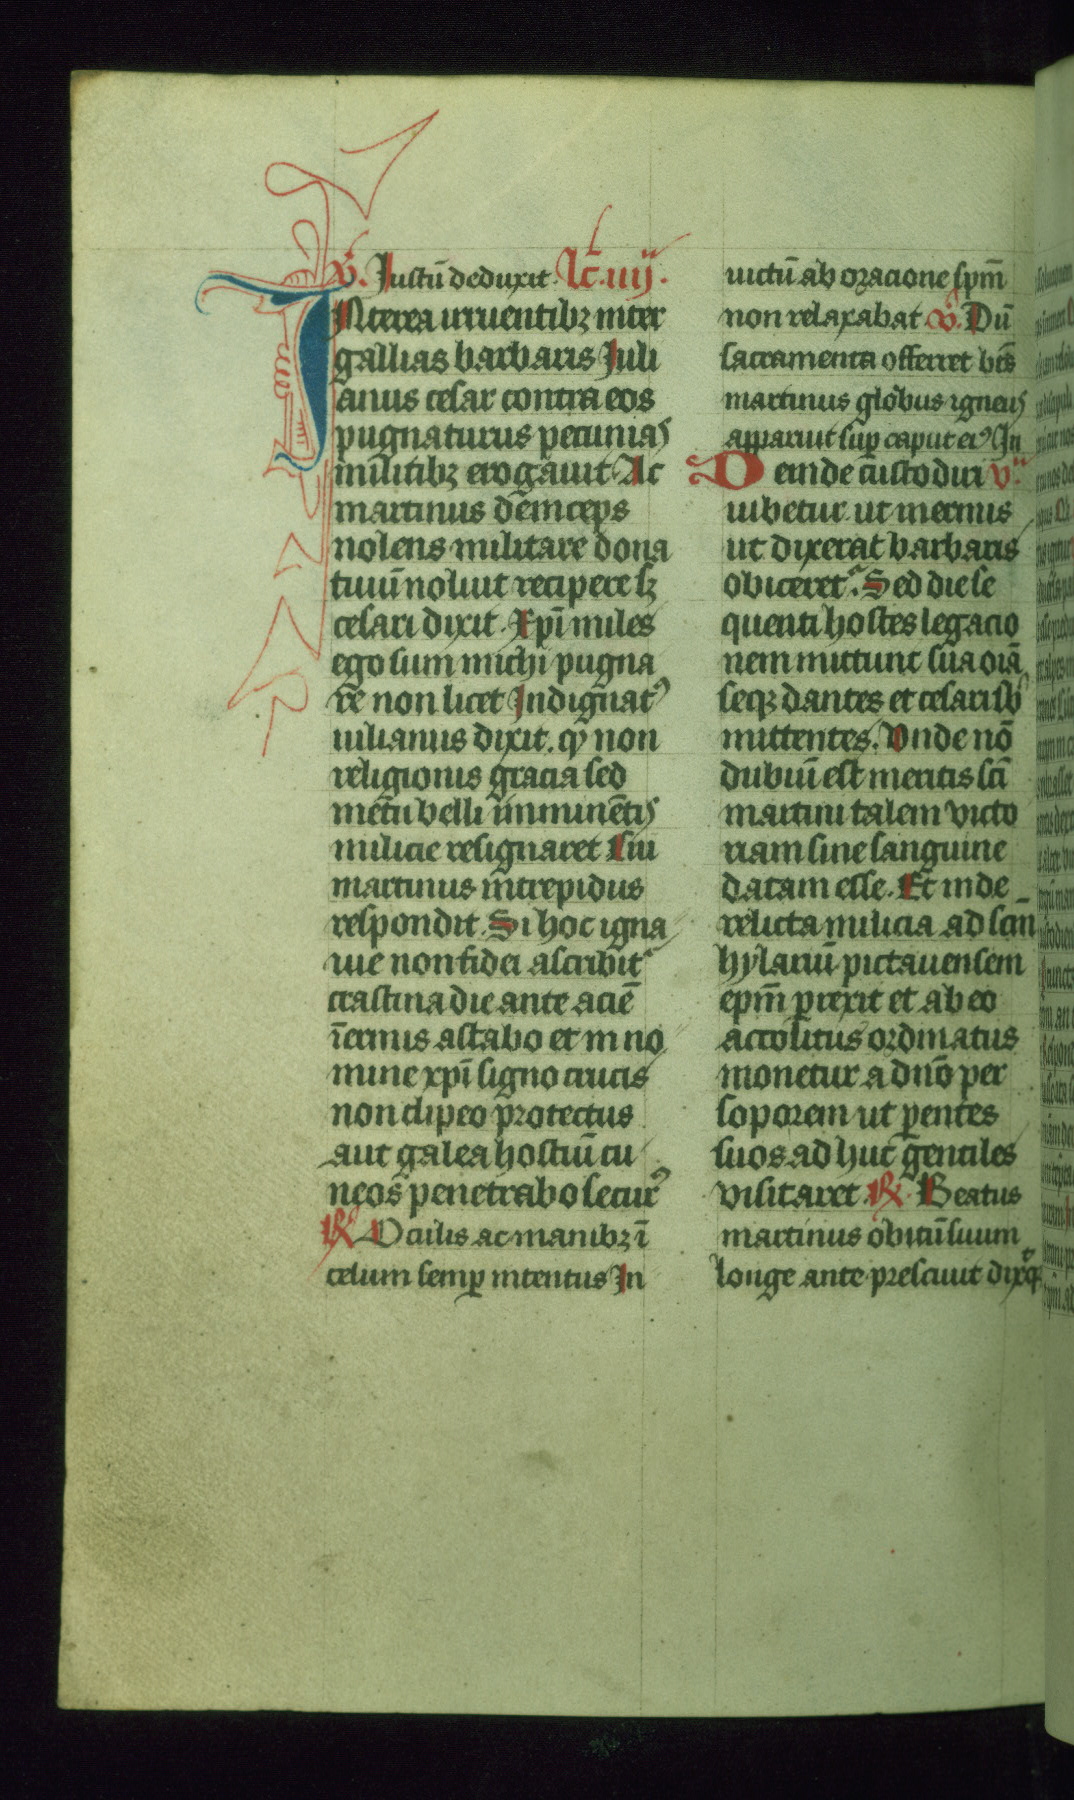 v̄. Iustū deduxit. Lc̄. iiij.
INterea irruentibꝫ inter
gallias barbaris Iuli
anus cesar contra eos
pugnaturus pecunias
militibꝫ erogauit. Ac
martinus deinceps
nolens militare dona
tiuū noluit recipere sꝫ
cesari dixit. Xp̄i miles
ego sum michi pugna
re non licet Indignatꝰ
iulianus dixit. qͥ non
religionis gracia sed
metu belli imminētis
milicie resignaret Cui
martinus intrepidus
respondit. Si hoc igna
uie non fidei ascribit᷑
crastina die ante aciē
īermis astabo et in no
mine xp̄i signo crucis
non clipeo protectus
aut galea hostiū cu
neos penetrabo securꝰ
℟ Oculis ac manibꝫ ī
celum semꝑ intentus In
uictū ab oracione sp̄m
non relaxabat. v̄. Dū
sacramenta offerret bt̄s
martinus globus igneus
apparuit suꝑ caput eiꝰ In
Deinde custodiri vͣ.
iubetur ut inermis
ut dixerat barbaris
obiceret᷑. Sed die se
quenti hostes legacio
nem mittunt sua oīa
seqꝫ dantes et cesari sb̾
mittentes. Vnde nō
dubiū est meritis sc̄i
martini talem victo
riam sine sanguine
datam esse. Et inde
relicta milicia ad scm̄
hylariū pictauensem
ep̄m ꝑrexit et ab eo
accolitus ordinatus
monetur a dn̄o per
soporem ut ꝑentes
suos ad huc gentiles
visitaret ℟ Beatus
martinus obitū suum
longe ante presciuit dixꝗͤ